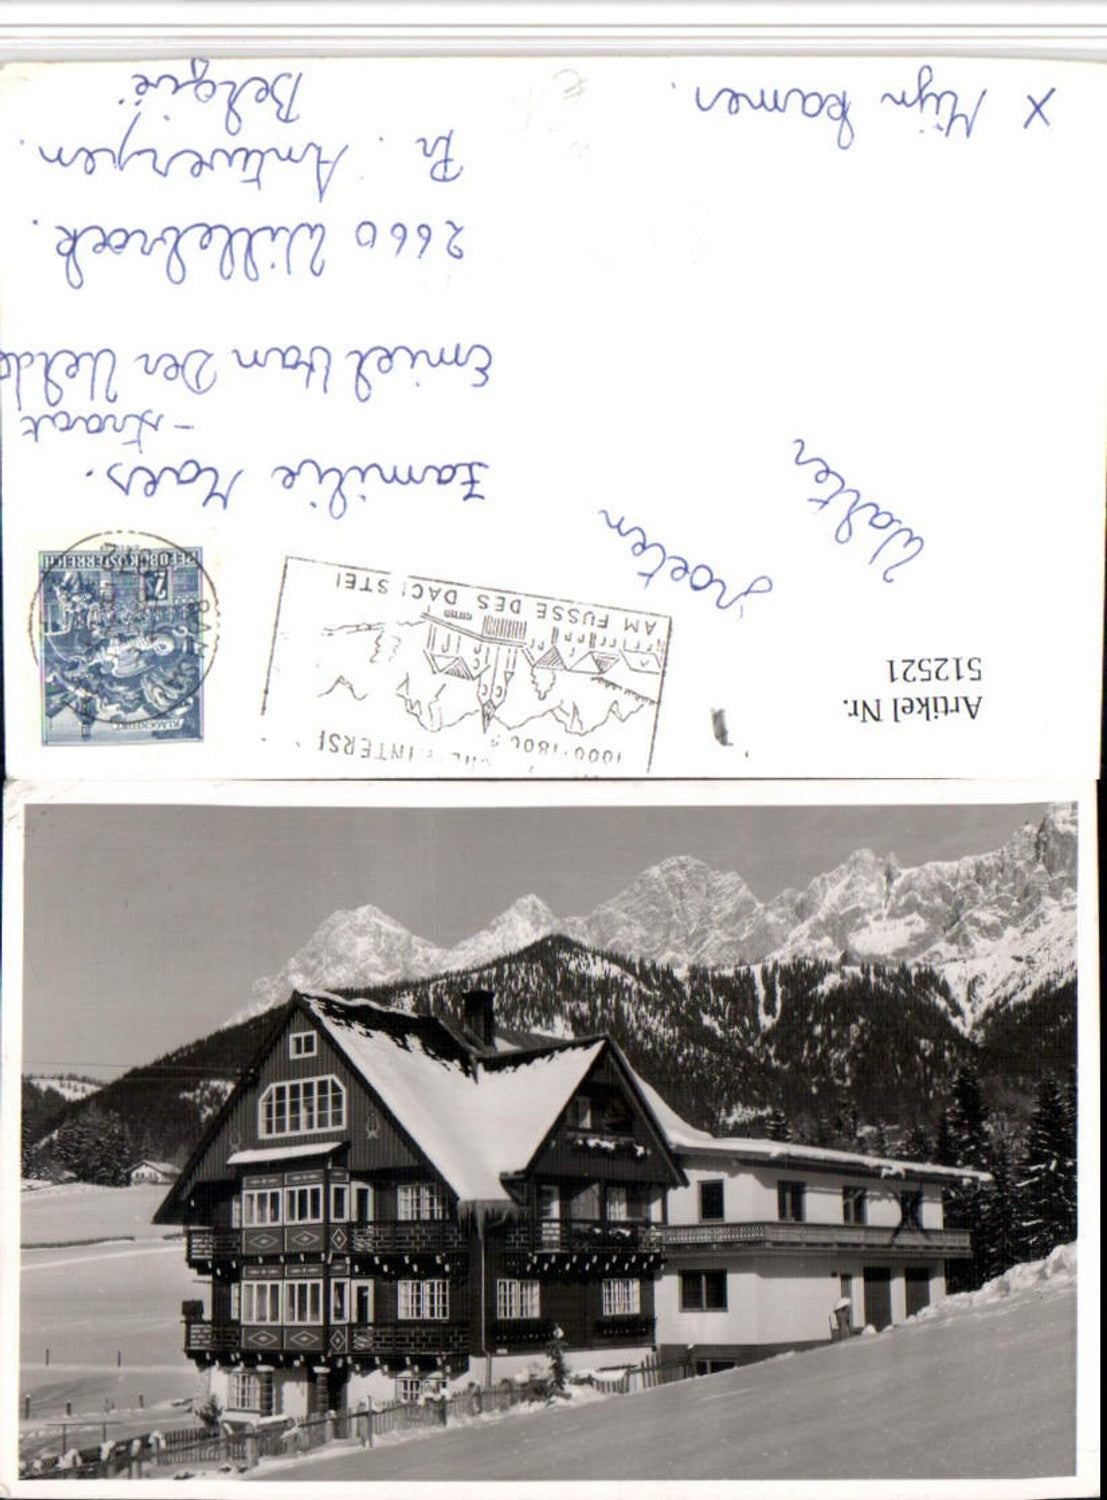 X Mijn kamer.
Groeten
Walter
Familie Maes.
Emiel Van Der Velde
-straat
2660 Willebroek.
Pr. Antwerpen.
België
Artikel Nr.
512521
1000-1800
AM FUSSE DES DACHSTEI
REPUBLIK ÖSTERREICH
2
KLAGENFURT